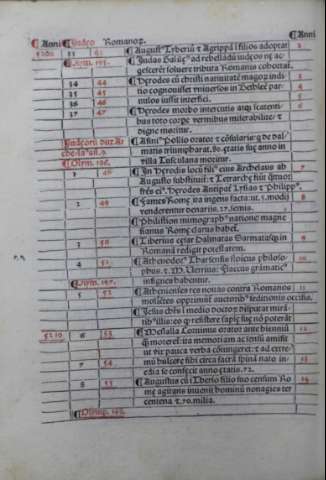 Anni Judeo Romanoꝝ Anni
5200 33 43 Augustꝰ Tyberiū & Agrippā ī filios adoptat 2
Olym. 195. Judas Galilęꝰ ad rebellādū iudęos
gesceret soluere tributa Romanis cohortat
34 44 Herodes cū christi natiuitatē magoꝝ indi 3
35 45 tio cognouisset vniuersos in Bethleē par
36 46 uulos iussit interfici.
37 47 Herodes morbo intercutis aquę scatenti
bus toto corpe vermibus miserabiliter &
digne moritur.
Judęorū dux Ar Asiniꝰ Pollio orator & cōsularis q de dal
che-laꝰ an. 9. matis triumpharat. 80. ętatis suę anno in
Olym. 196. villa Tusculana moritur.
1 48 In Herodis locū filiꝰ eius Archelaus ab 7
Augusto substituit & Tetrarchę fiūt
frēs eiꝰ. Herodes Antipaꝰ Lysias & Philippꝰ.
2 49 Fames Romę ita ingens facta ut. 5. modij 8
venderentur denariis. 27. semis.
Philistion mimographꝰ natione magne
sianus Romę clarus habet.
3 50 Tiberius cęsar Dalmatas Sarmatasq in 9
Romanā redigit potestatem.
4 51 Athenodorꝰ Tharsensis stoicus philoso 10
phus. & M. Verrius Flaccus gramaticꝰ
Olym. 197. insignes habentur.
5 52 Athenienses res nouas contra Romanos
molientes opprimūt auctoribꝰ seditionis occisis.
Jesus christi medio doctores disputat mirā
tibꝰ illis:
5210 6 53 Messalla Corvinus orator ante biennium 12
q moreret ita memoriam ac sensum amisit
ut vix pauca verba coniungeret: & ad extre
7 54 mū ulcere sibi circa sacrā spinā nato in 13
edia se confecit anno ętatis. 72.
8 55 Augustus cū Tiberio filio suo censum Ro 14
mę agitans inuenit hominū nonagies ter
centena & 70. milia.
Olymp. 198.